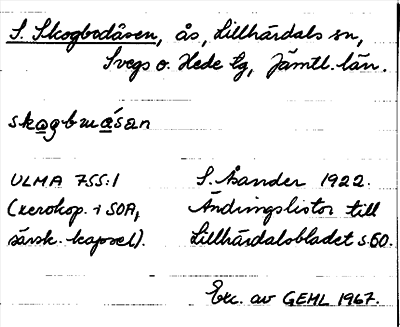 S. Skogbodåsen, ås, Lillhärdals sn,
Svegs o. Hede tg, Jämtl. län.
skagbwásan
ULMA 755:1 S. Åsander 1922.
(xerokop. i SOA, Ändringslistor till
särsk. kapsel). Lillhärdalsbladet s.60.
Exc. av GEHL 1967.